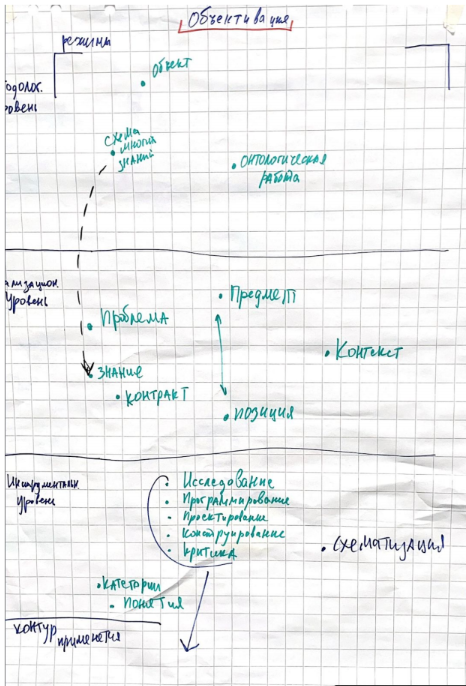 Объективация
режимы
одолог.
ровень
• Объект
схема
• многих
знаний
• Онтологическая
работа
ализацион.
Уровень
• Предмет
• Проблема
• Контекст
• Знание
• Контракт
• Позиция
Инструментальн
Уровень
• Исследование
• Программирование
• Проектирование
• Конструирование
• Критика
• Схематизация
• Категории
• Понятия
Контур
применения